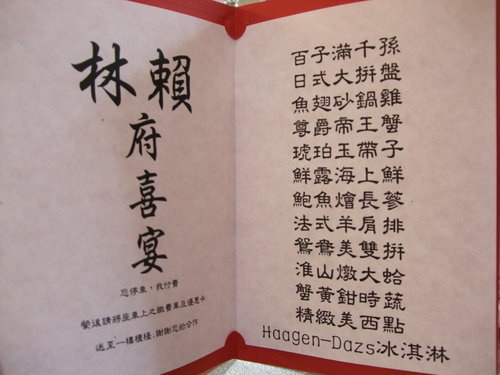 林賴
府
喜
宴
您停車,我付費
請將座車上之繳費單及優惠卡
送至一樓櫃檯,謝謝您的合作
百子滿千孫
日式大拼盤
魚翅砂鍋雞
尊爵帝王蟹
琥珀玉帶子
鮮露海上鮮
鮑魚燴長蔘
法式羊肩排
鴛鴦美雙拼
淮山燉大蛤
蟹黃鉗時蔬
精緻美西點
Haagen-Dazs冰淇淋